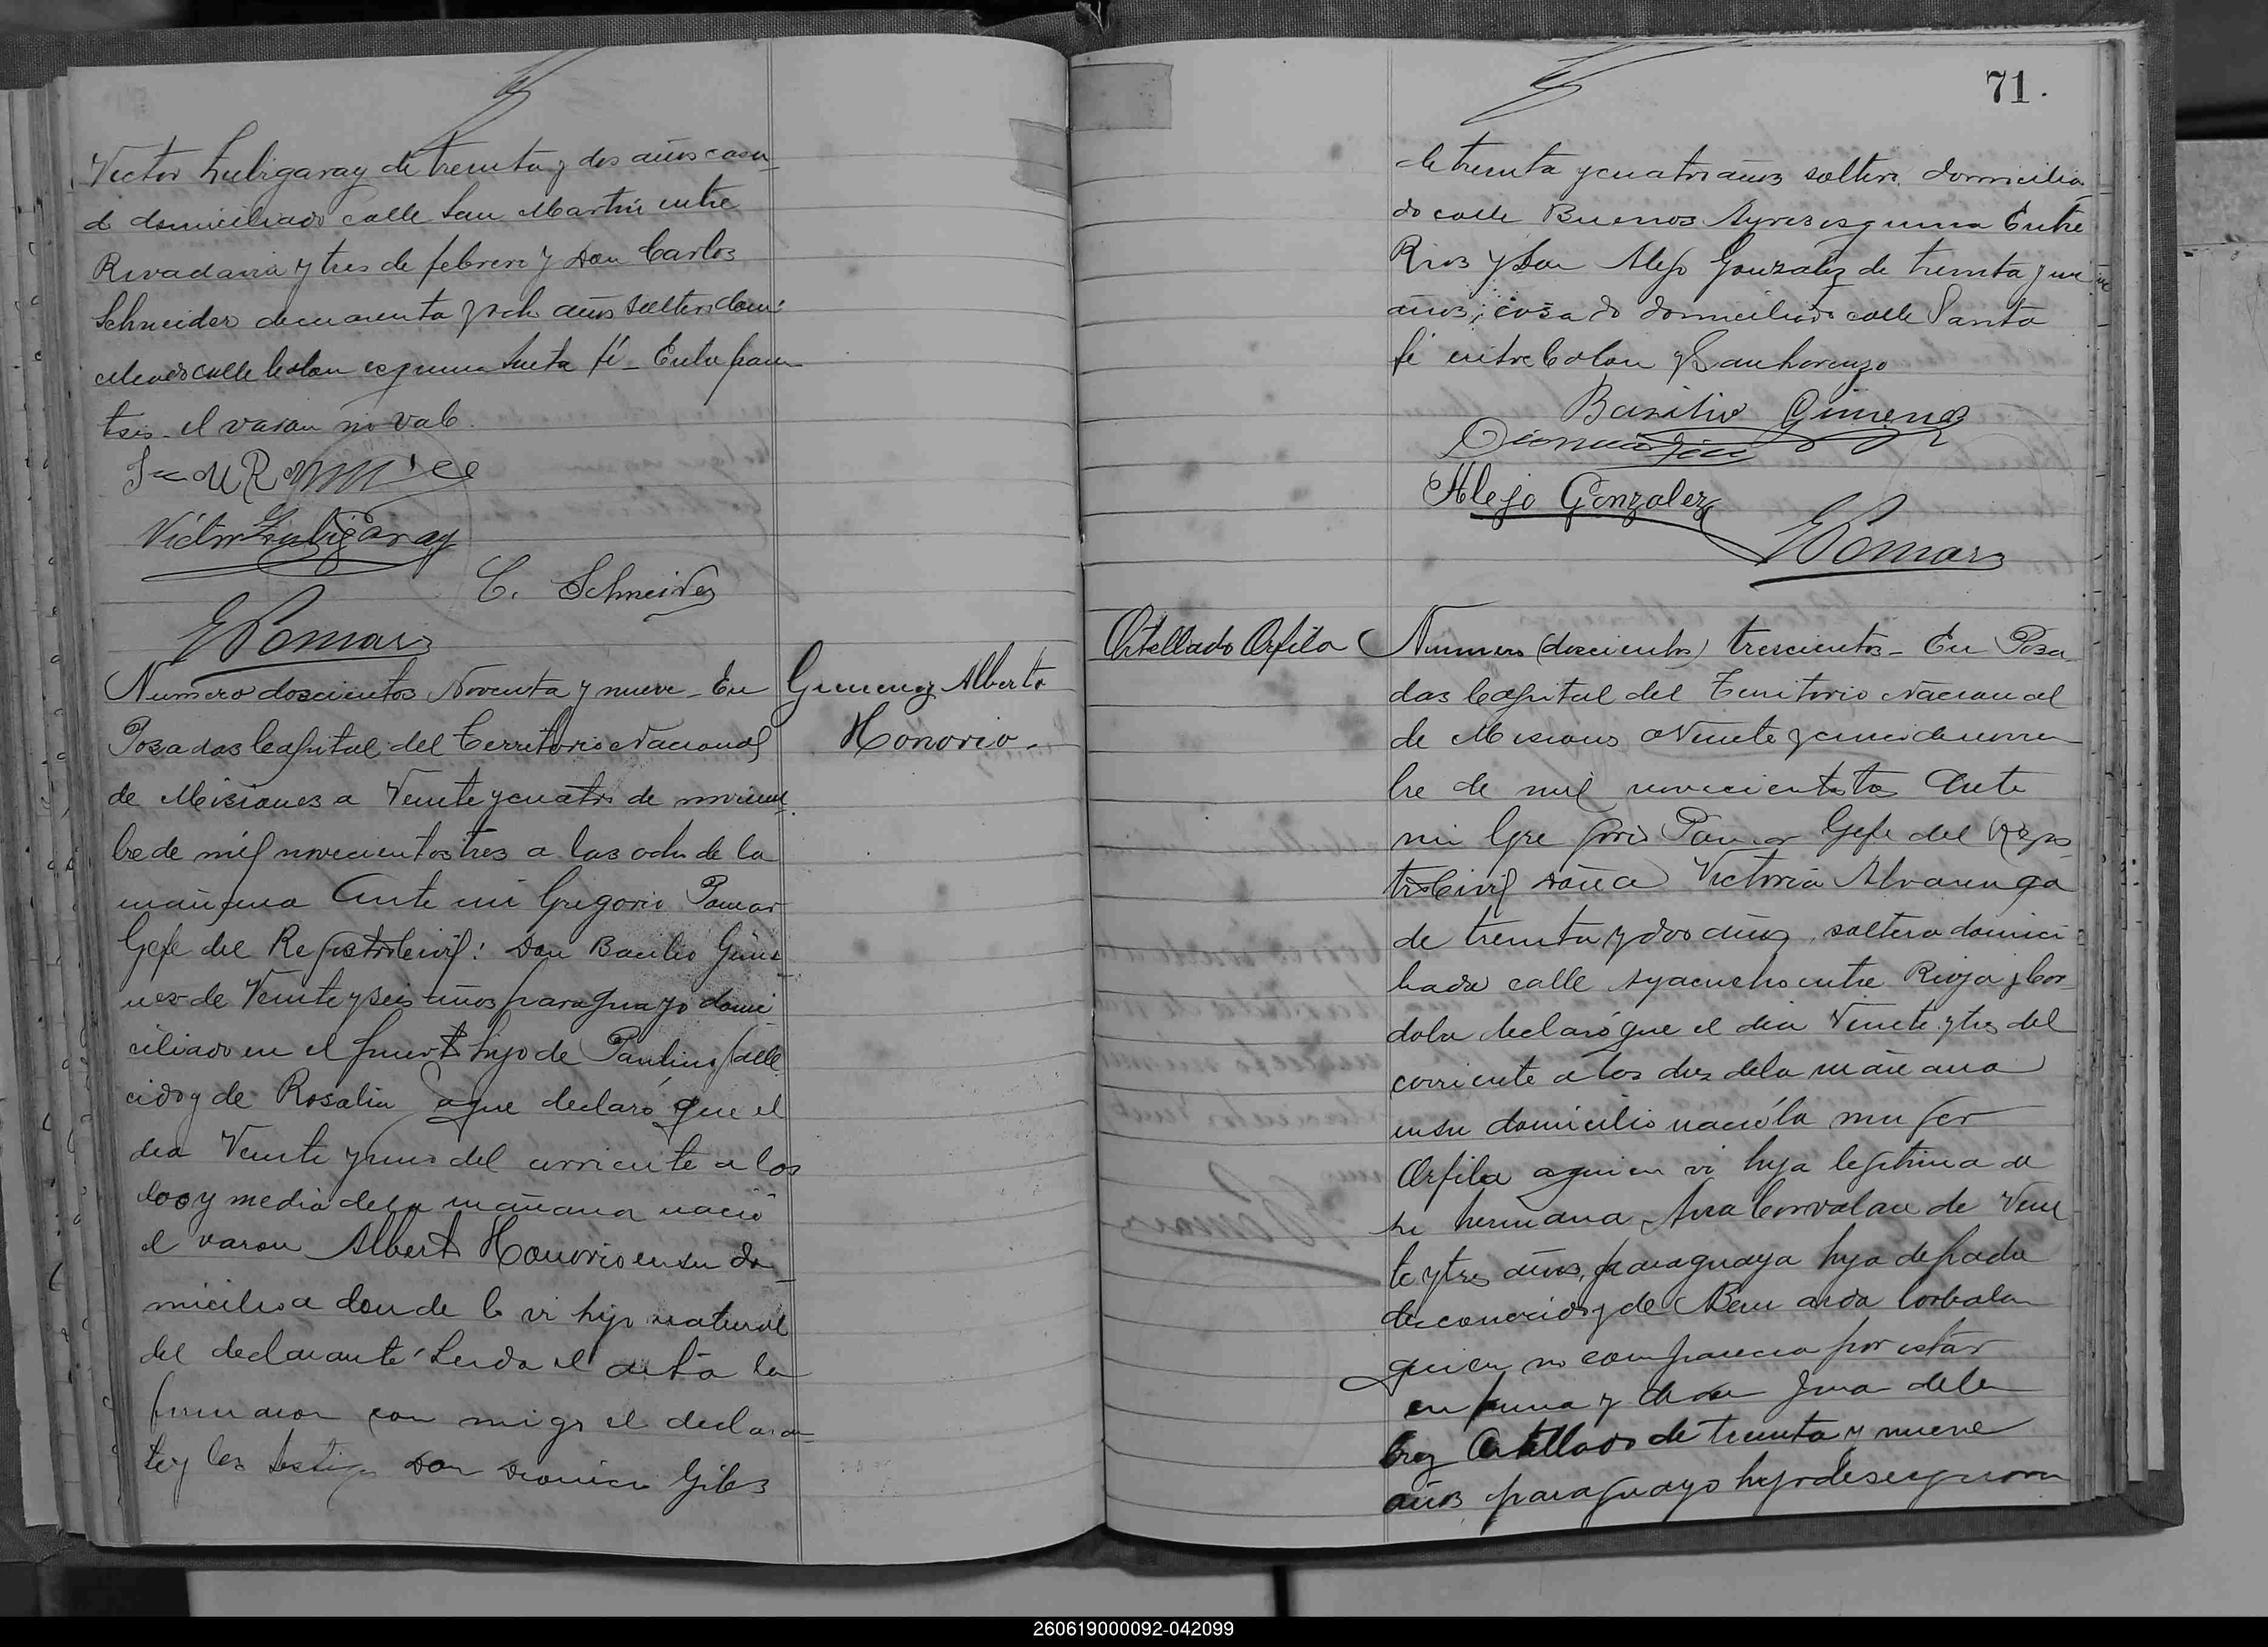 Victor Zubigaray de treinta y dos años casa
do domiciliado calle San Martin entre
Rivadavia y tres de febrero y Don Carlos
Schneider de cuarenta y ocho años soltero domi
ciliado calle Colon esquina Santa fé_ Entre paren
tesis_ el varon no vale.
Victor Zubigaray
C. Schneider
G Pomar
Numero doscientos Noventa y nueve_ En
Posadas Capital del Territorio Nacional
de Misiones a Veinte y cuatro de noviem
bre de mil novecientos tres a las ocho de la
mañana Ante mi Gregorio Pomar
Gefe del Registro Civil: Don Basilio Gime
nez de Veinte y seis años paraguayo domi
ciliado en el puerto hijo de Paulino falle
cido y de Rosalia que declaró que el
dia Veinte y uno del corriente a las
dos y media de la mañana nació
el varon Alberto Honorio en su do
micilio a donde lo vi hijo natural
del declarante Leida el acta la
firmaron con migo el declaran
te y los testigos Don Dionicio Giles
Gimenez Alberto
Honorio.
71.
de treinta y cuatro años soltero domicilia
do calle Buenos Ayres esquina Entre
Rios y Don Alejo Gonzalez de treinta y un
años, casado domiciliado calle Santa
fé entre Colon y San Lorenzo
Basilio Gimenez
Alejo Gonzalez
G Pomar
Artellado Orfila
Numero (doscientos) trescientos_ En Posa
das Capital del Territorio Nacional
de Misiones a Veinte y cinco de noviem
bre de mil novecientos tres Ante
mi Gregorio Pomar Gefe del Regis
tro Civil Doña Victoria Alvarenga
de treinta y dos años, soltera domici
liada calle Ayacucho entre Rioja y Cor
doba declaró que el dia Veinte y tres del
corriente a las diez de la mañana
en su domicilio nació la muger
Orfila a quien vi hija legitima de
su hermana Ana Corvalan de Vein
te y tres años, paraguaya hija de padre
desconocido y de Bernarda Corbalan
quien no comparecia por estar
enferma y de Juan de la
Cruz Artellado de treinta y nueve
años paraguayo hijo de
260619000092-042099